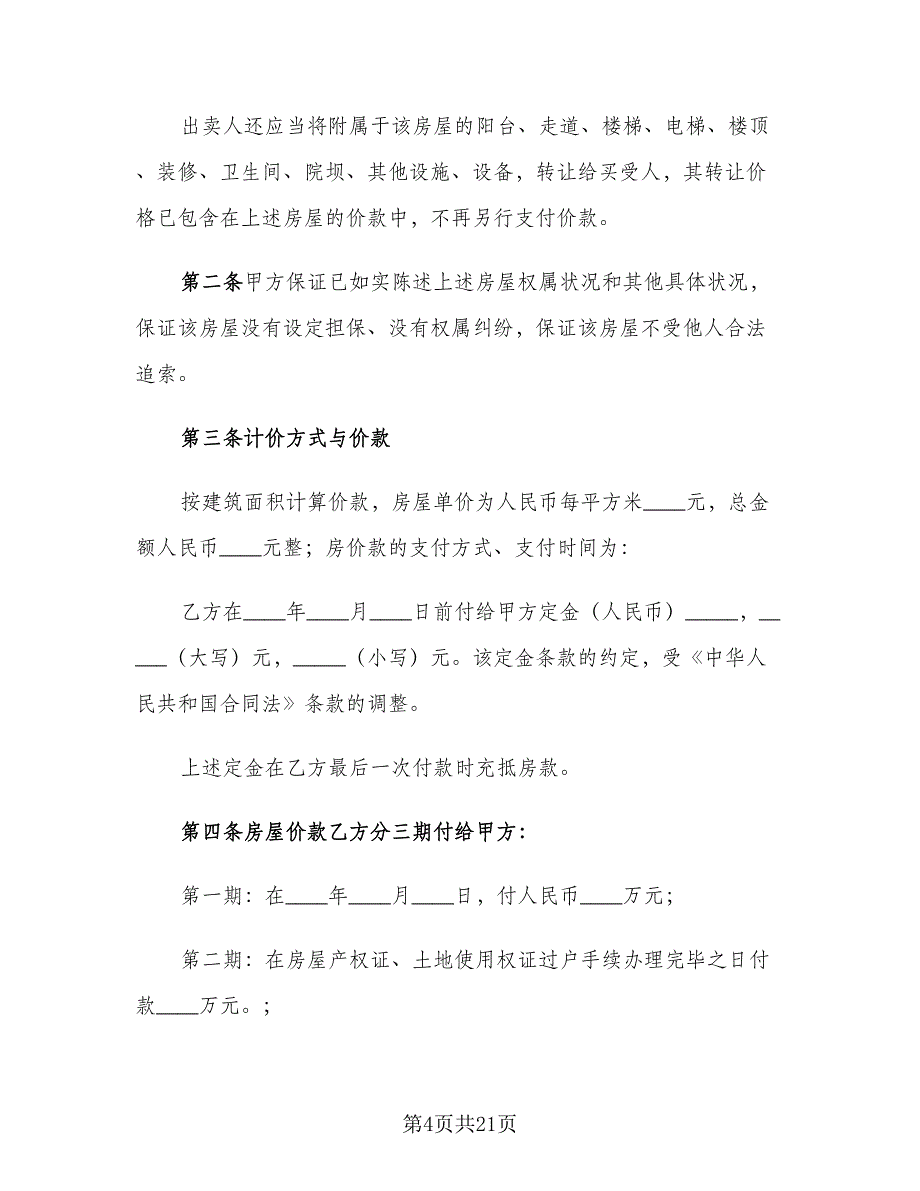 出卖人还应当将附属于该房屋的阳台、走道、楼梯、电梯、楼顶
、装修、卫生间、院坝、其他设施、设备，转让给买受人，其转让价
格已包含在上述房屋的价款中，不再另行支付价款。
第二条甲方保证已如实陈述上述房屋权属状况和其他具体状况，
保证该房屋没有设定担保、没有权属纠纷，保证该房屋不受他人合法
追索。
第三条计价方式与价款
按建筑面积计算价款，房屋单价为人民币每平方米____元，总金
额人民币____元整；房价款的支付方式、支付时间为：
乙方在____年____月____日前付给甲方定金（人民币）_____，__
___（大写）元，_____（小写）元。该定金条款的约定，受《中华人
民共和国合同法》条款的调整。
上述定金在乙方最后一次付款时充抵房款。
第四条房屋价款乙方分三期付给甲方：
第一期：在____年____月____日，付人民币____万元；
第二期：在房屋产权证、土地使用权证过户手续办理完毕之日付
款____万元。；
第4页共21页